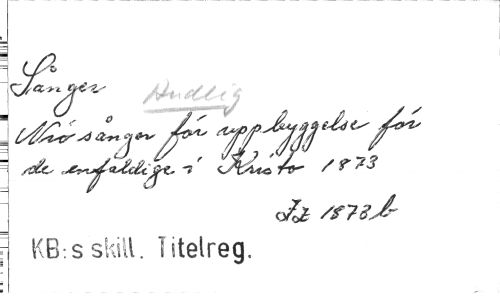 Sånger Andlig
Nio sånger för uppbyggelse för
de enfaldige i Kristo 1873
Jz 1873 b
KB:s skill. Titelreg.